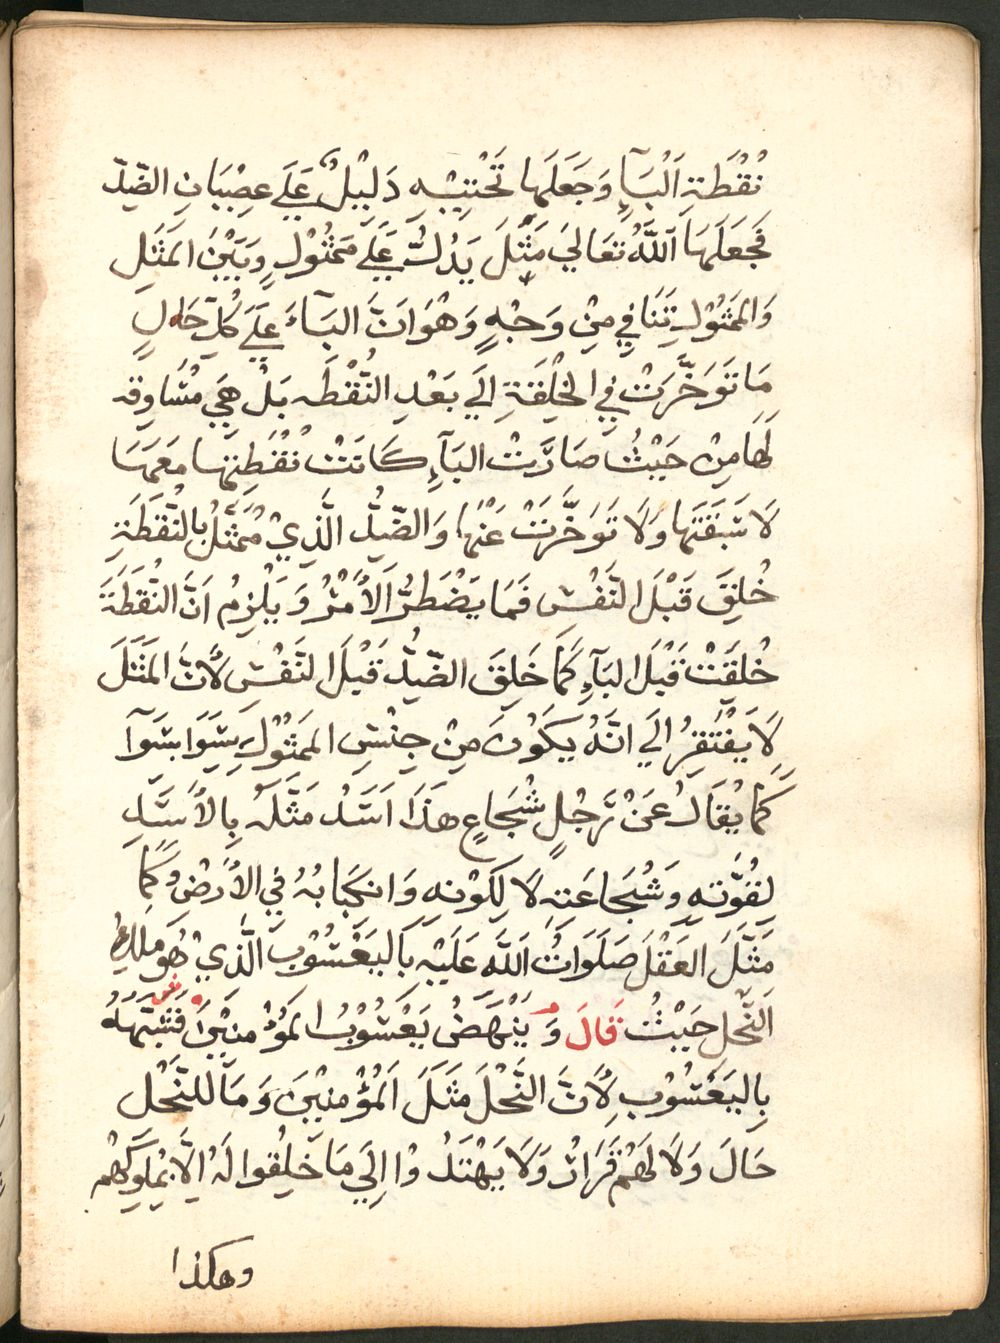 نُقْطَةِ اَلْبَآءِ وَجَعَلَهَا تَحْتِيْهِ دَلِيْلٌ عَلَى عِصْيَانِ الضِّدّ
فَجَعَلَهَا اَللَّهُ تَعَالَي مَثَلَ يَدُلُّ عَلَى مَمْثُوْلٍ وَبَيْنَ المَثَلِ
وَالمَمْثُوْلِ تَنَافِي مِنْ وَجْهٍ وَهُوَ اَنَّ البَآءَ عَلَى كُلِّ حَالٍ
مَا تَوَخَّرَتْ فِي الخِلْقَةِ اِلَى بَعْدِ النُّقْطَه بَلْ هِيَ مُسَاوِقه
لَهَا مِنْ حَيْثُ صَارَتْ البَآءِ كَانَتْ نُقْطَتِهَا مَعَهَا
لَا سَبَقَتْهَا وَلَا تَوَخَّرَتْ عَنْهَا وَالضِّدُّ الَّذِيْ مُمَثَّلٌ بِالنُّقْطَةِ
خُلِقَ قَبْلَ النَّفْسِ فَمَا يَضْطَرُّ الأَمْرُ وَيَلْزِمُ اَنَّ النُقْطَةَ
خُلِقَتْ قَبْلَ البَآءِ كَمَا خَلِقَ الضِّدُّ قَبْلَ النَفْسِ لأَنَّ المَثَلَ
لَا يَفْتَقِرُ اِلَي اَنَّهُ يَكُوْنَ مِنْ جِنْسِ المَمْثُوْلِ سَوَا بِسَوَآ
كَمَا يُقَالُ عَنْ رَجُلٍ شُجَاعٍ هَذَا اَسَدٌ مَثَّلَهُ بِالأَسَدِ
لِقُوَّتِهِ وَشُجَاعَتِهِ لَا لِكَوْنِهِ وَانحجَابهُ فِي الأَرْضِ وَكَمَا
مَثَّلَ العَقْلَ صَلَوَاتُ اَللَّهِ عَلَيْهِ بِاَليَعْسُوْبِ الَّذِيْ هُوَ مَلِكُ
النَّحْلِ حَيْثُ قَالَ وَ يَنْهَضُ يَعْسُوْبُ المُؤْمِنِيْنَ فَشَبَّهَهُ
بِاليَعْسُوْبِ لأَنَّ النَّحْلَ مَثَلَ اَلمُؤْمِنِيْنَ وَمَا لِلنَّحْلِ
حَالَ وَلَا لَهُمْ قَرَارٌ وَلَا يَهْتَدُوْا اِلَي مَا خُلِقُوا لَهُ اِلَّا بِمُلُوكِهُم
وهكذا